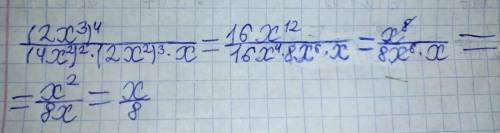 (2x³)⁴/((4x²)²·(2x²)³·x) = 16x¹²/(16x⁴·8x⁶·x) = x⁸/(8x⁶·x) =
= x²/(8x) = x/8